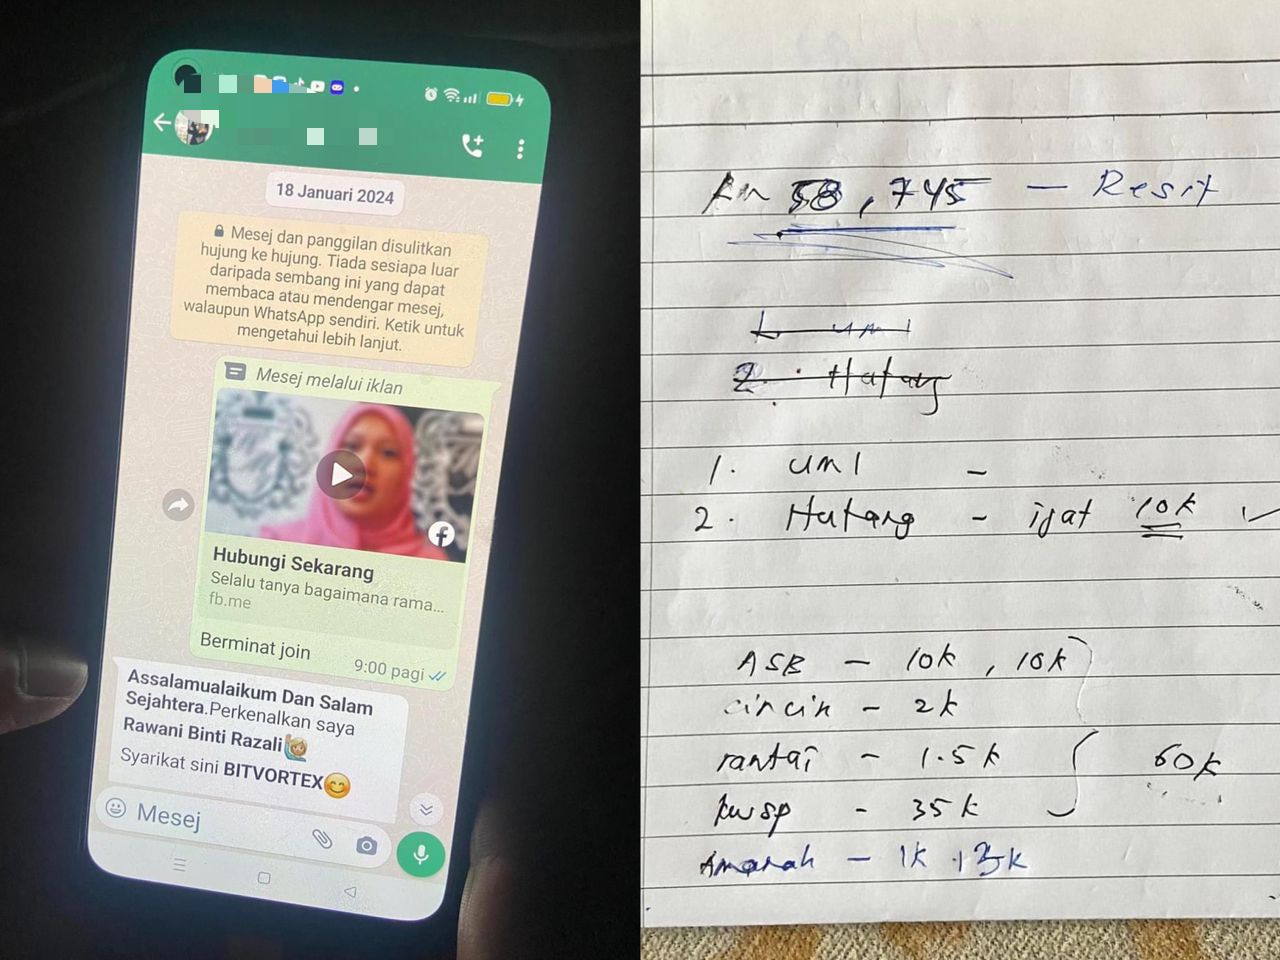 18 Januari 2024
Mesej dan panggilan disulitkan
hujung ke hujung. Tiada sesiapa luar
daripada sembang ini yang dapat
membaca atau mendengar mesej,
walaupun WhatsApp sendiri. Ketik untuk
mengetahui lebih lanjut.
Mesej melalui iklan
Hubungi Sekarang
Selalu tanya bagaimana rama...
fb.me
Berminat join
9:00 pagi
Assalamualaikum Dan Salam
Sejahtera.Perkenalkan saya
Rawani Binti Razali🙋🏼‍♀️
Syarikat sini BITVORTEX😊
Mesej
RM 58,745 — Resit
1. umi
2. Hutang
1. umi -
2. Hutang - ijat 10k ✓
ASB - 10k, 10k
cincin - 2k
rantai - 1.5k
60k
kwsp - 35k
Amanah - 1k